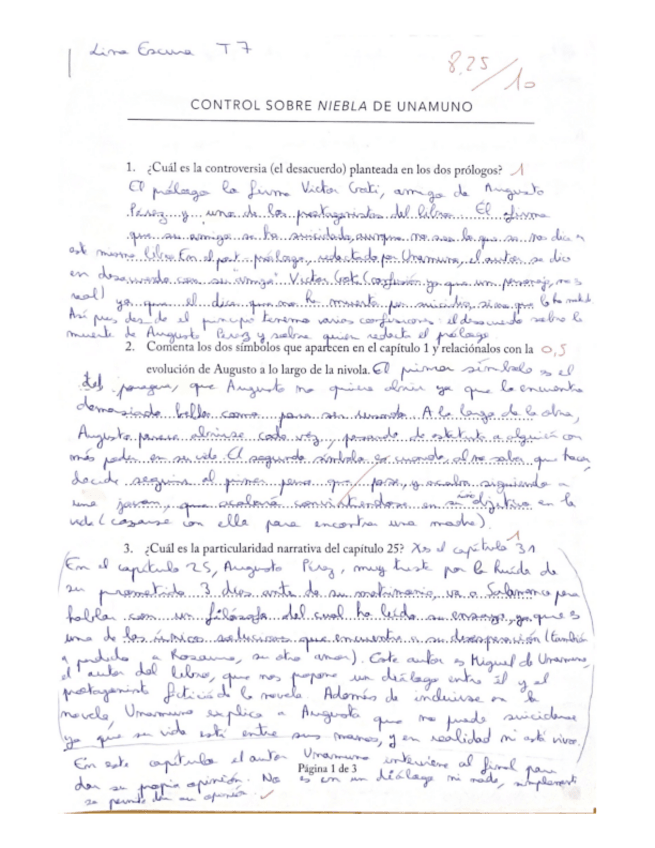 Lina Escuna T7
8,25/10
CONTROL SOBRE NIEBLA DE UNAMUNO
1. ¿Cuál es la controversia (el desacuerdo) planteada en los dos prólogos? 1
El prólogo lo firma Victor Goti, amigo de Augusto
Pérez y uno de los protagonistas del libro. El afirma
que su amigo se ha suicidado, aunque no sea lo que se nos dice en
este mismo libro. En el post-prólogo, redactado por Unamuno, el autor se dice
en desacuerdo con su "amigo" Victor Goti (confusión ya que un personaje, no es
real) ya que el dice que no ha muerto por suicidio, sino que lo ha matado
Así pues desde el principio tenemos varias confusiones: el desacuerdo sobre la
muerte de Augusto Perez y sobre quien redacta el prólogo
2. Comenta los dos símbolos que aparecen en el capítulo 1 y relaciónalos con la 0,5
evolución de Augusto a lo largo de la nivola. El primer símbolo es el
del paraguas, que Augusto no quiere abrir ya que lo encuentra
demasiado bello como para ser usado. A lo largo de la obra,
Augusto parece abrirse cada vez, pasando de estatuto a alguien con
más poder en su vida. El segundo símbolo es cuando, al no saber que hacer,
decide seguir al primer perro que pase, y acaba siguiendo a
una joven, que acabará convirtiendose en su único objetivo en la
vida (casarse con ella para encontrar una madre).
3. ¿Cuál es la particularidad narrativa del capítulo 25? Xs el capítulo 31 1
En el capítulo 25, Augusto Pérez, muy triste por la huida de
su prometida 3 dias antes de su matrimonio, va a Salamanca para
hablar con un filósofo del cual ha leído su ensayo, ya que es
una de las únicas soluciones que encuentra a su desesperación (también
a perdido a Rosario, su otro amor). Este autor es Miguel de Unamuno,
el autor del libro, que nos propone un diálogo entre él y el
protagonista ficticio de la novela. Además de incluirse en la
novela, Unamuno explica a Augusto que no puede suicidarse
ya que su vida está entre sus manos, y en realidad ni está vivo.
En este capítulo el autor Unamuno interviene al final para
dar su propia opinión. No es en un diálogo ni nada, simplemente
se permite dar su opinión.
Página 1 de 3